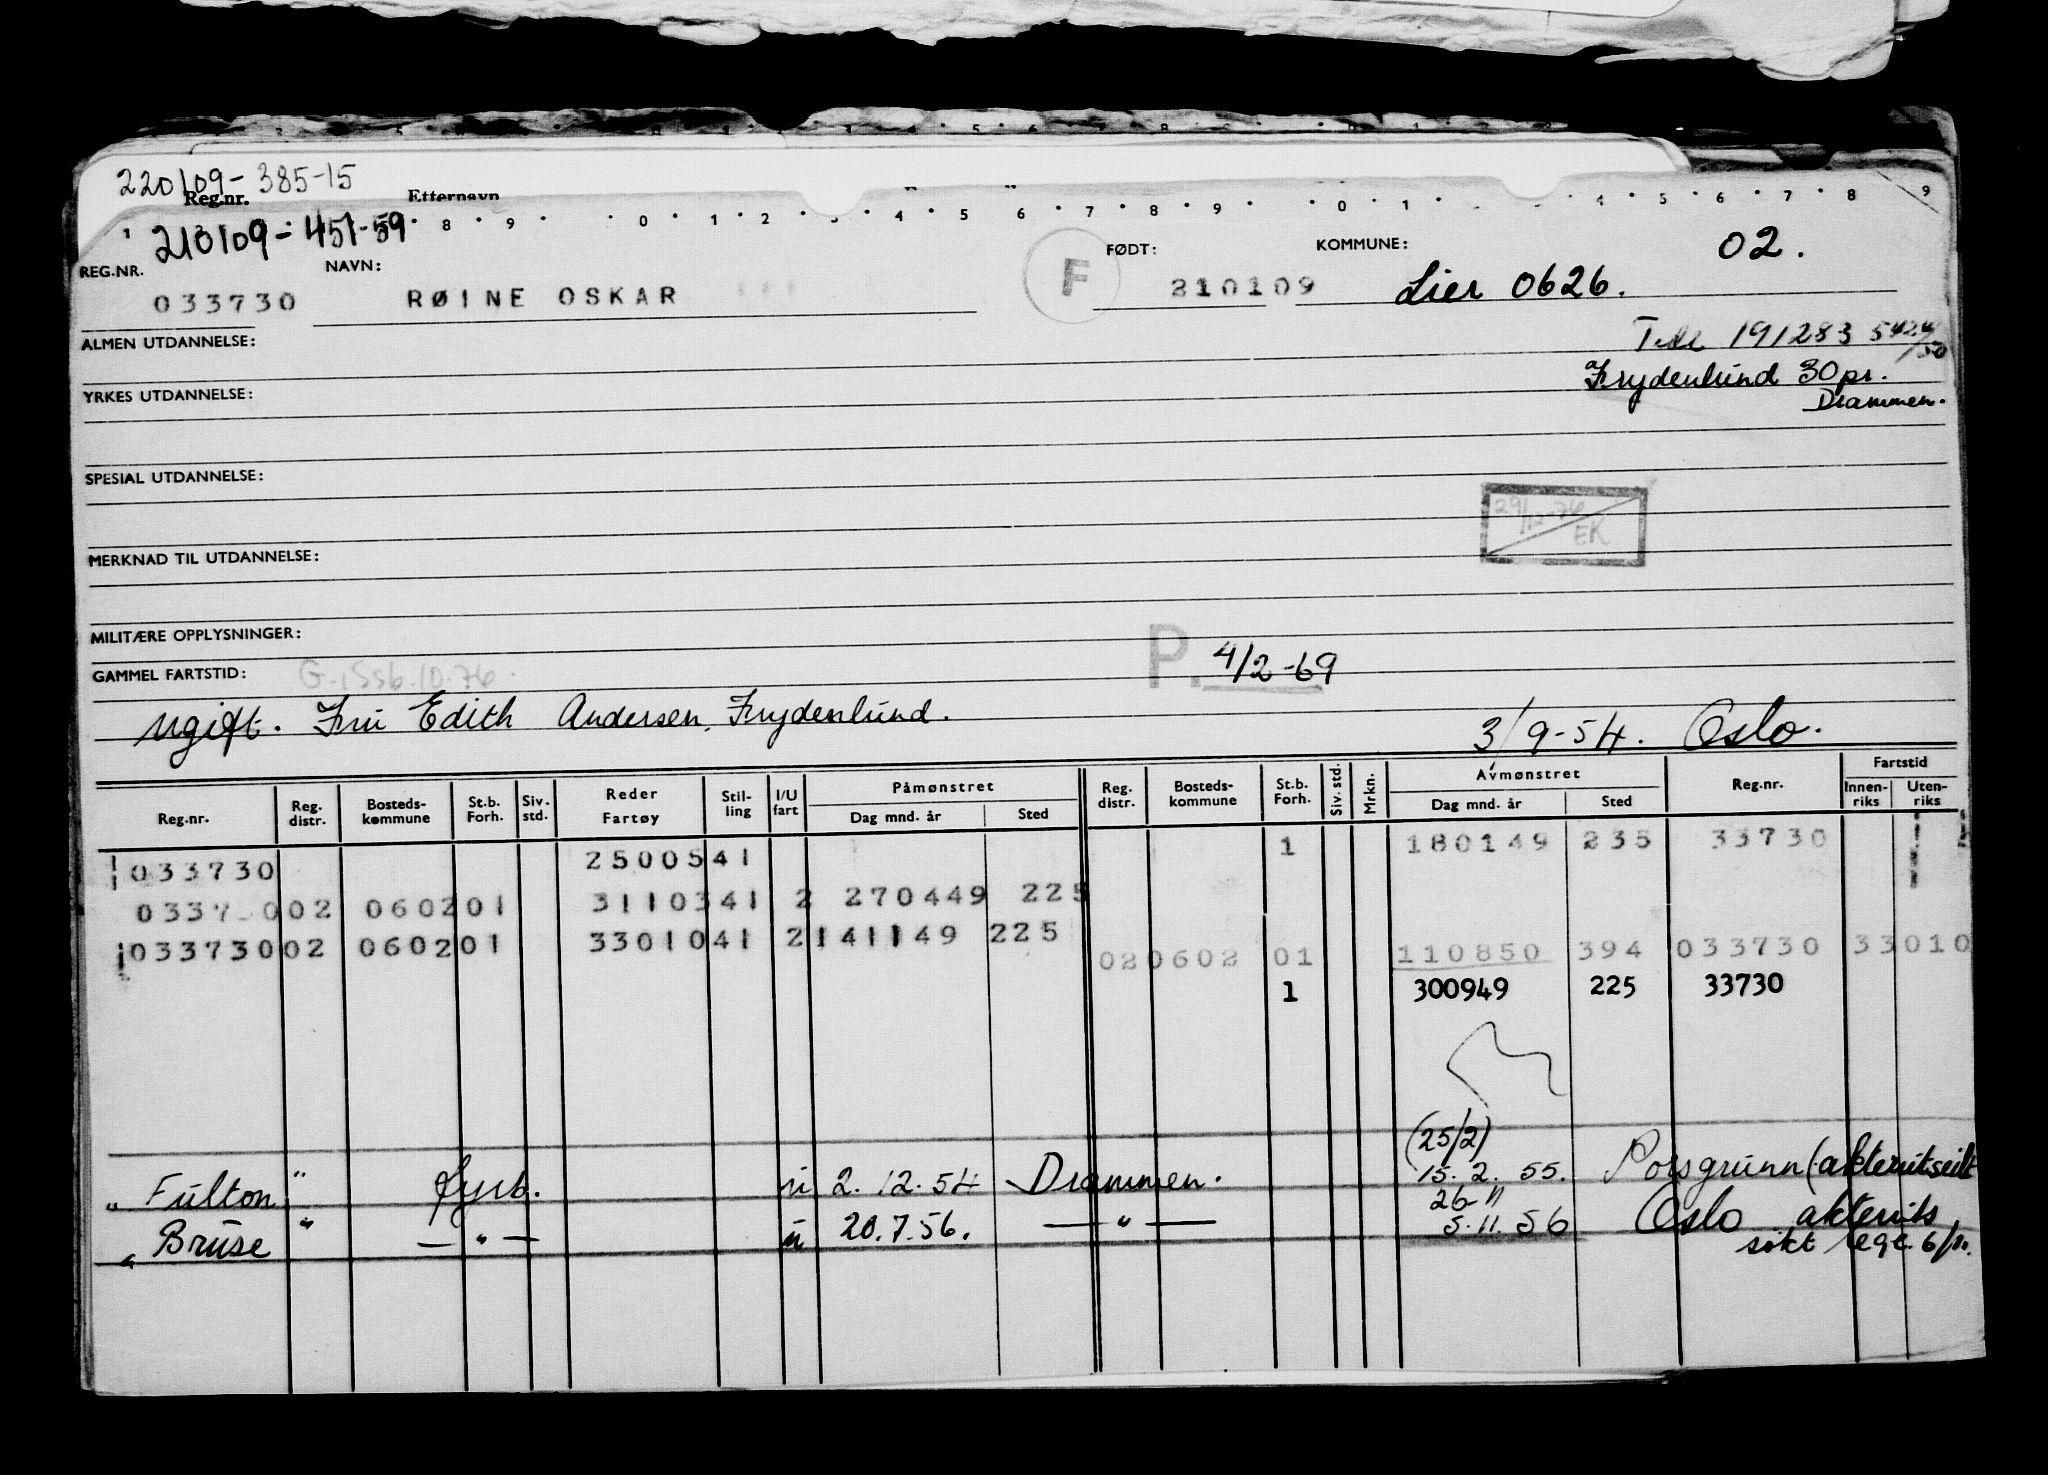 220109-385-15
Reg.nr. Etternavn
210109-451-59
1 8 9 0 1 2 3 4 5 6 7 8 9 0 1 4 5 6 7 8 9
REG.NR. NAVN: F FØDT: KOMMUNE: 02.
033730 RØINE OSKAR 210109 Lier 0626.
ALMEN UTDANNELSE:
Tele 191283
YRKES UTDANNELSE: Frydenlund 30 pr.
Drammen.
SPESIAL UTDANNELSE:
29/12-76
EK
MERKNAD TIL UTDANNELSE:
MILITÆRE OPPLYSNINGER:
GAMMEL FARTSTID: P. 4/2-69
ugift. Fru Edith Andersen, Frydenlund. 3/9-54. Oslo.
Reg.nr. Reg. distr. Bosteds-kommune St.b. Forh. Siv. std. Reder Fartøy Stil-ling I/U fart Påmønstret Dag mnd. år Sted Reg. distr. Bosteds-kommune St.b. Forh. Siv. std. Mrkn. Avmønstret Dag mnd. år Sted Reg.nr. Fartstid Innen-riks Uten-riks
033730 2500541 1 180149 235 33730
0337 0 02 0602 01 3110341 2 270449 225
033730 02 0602 01 3301041 2 141149 225
02 0602 01 110850 394 033730 33010
1 300949 225 33730
(25/2)
" Fulton " fyrb. u 2.12.54 Drammen. 15.2.55. Porsgrunn (akterutseilt
26-11
" Bruse " — " — u 20.7.56. — " — 5.11.56 Oslo akterut
søkt lege 6/11.